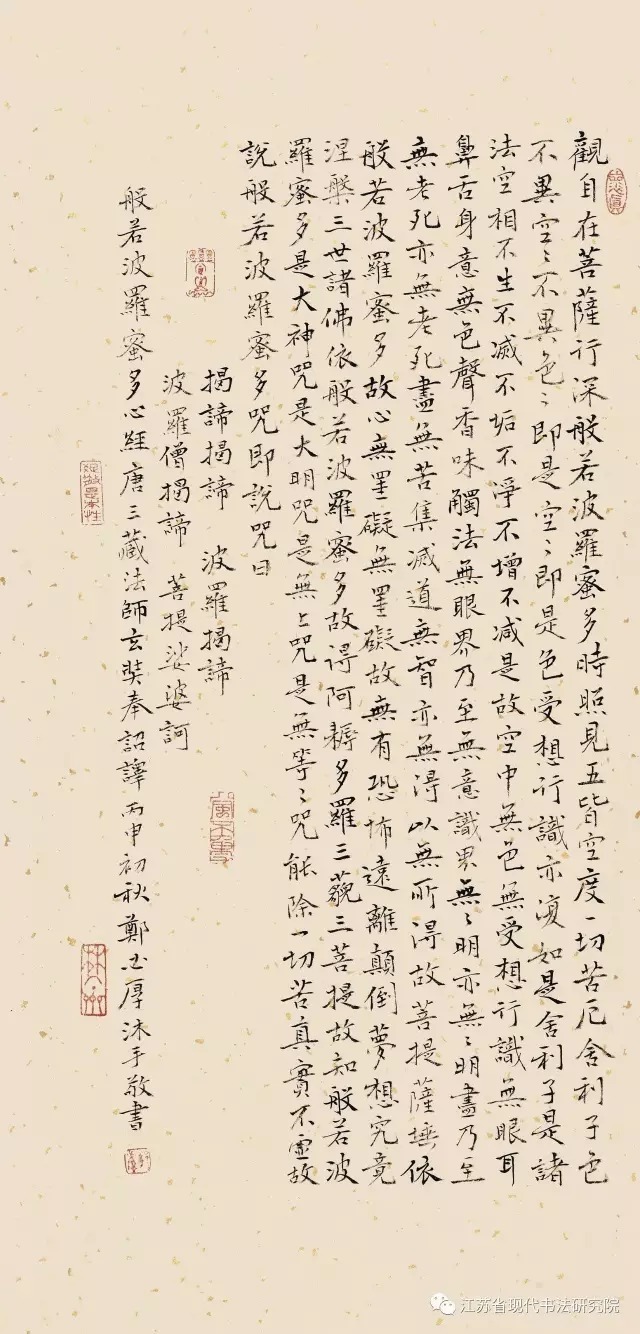 觀自在菩薩行深般若波羅蜜多時照見五皆空度一切苦厄舍利子色
不異空〻不異色〻即是空〻即是色受想行識亦復如是舍利子是諸
法空相不生不滅不垢不淨不增不減是故空中無色無受想行識無眼耳
鼻舌身意無色聲香味觸法無眼界乃至無意識界無〻明亦無〻明盡乃至
無老死亦無老死盡無苦集滅道無智亦無得以無所得故菩提薩埵依
般若波羅蜜多故心無罣礙無罣礙故無有恐怖遠離顛倒夢想究竟
涅槃三世諸佛依般若波羅蜜多故得阿耨多羅三藐三菩提故知般若波
羅蜜多是大神咒是大明咒是無上咒是無等〻咒能除一切苦真實不虛故
說般若波羅蜜多咒即說咒曰
揭諦揭諦 波羅揭諦
波羅僧揭諦 菩提娑婆訶
般若波羅蜜多心經唐三藏法師玄奘奉詔譯丙申初秋鄭厚沐手敬書
江苏省现代书法研究院